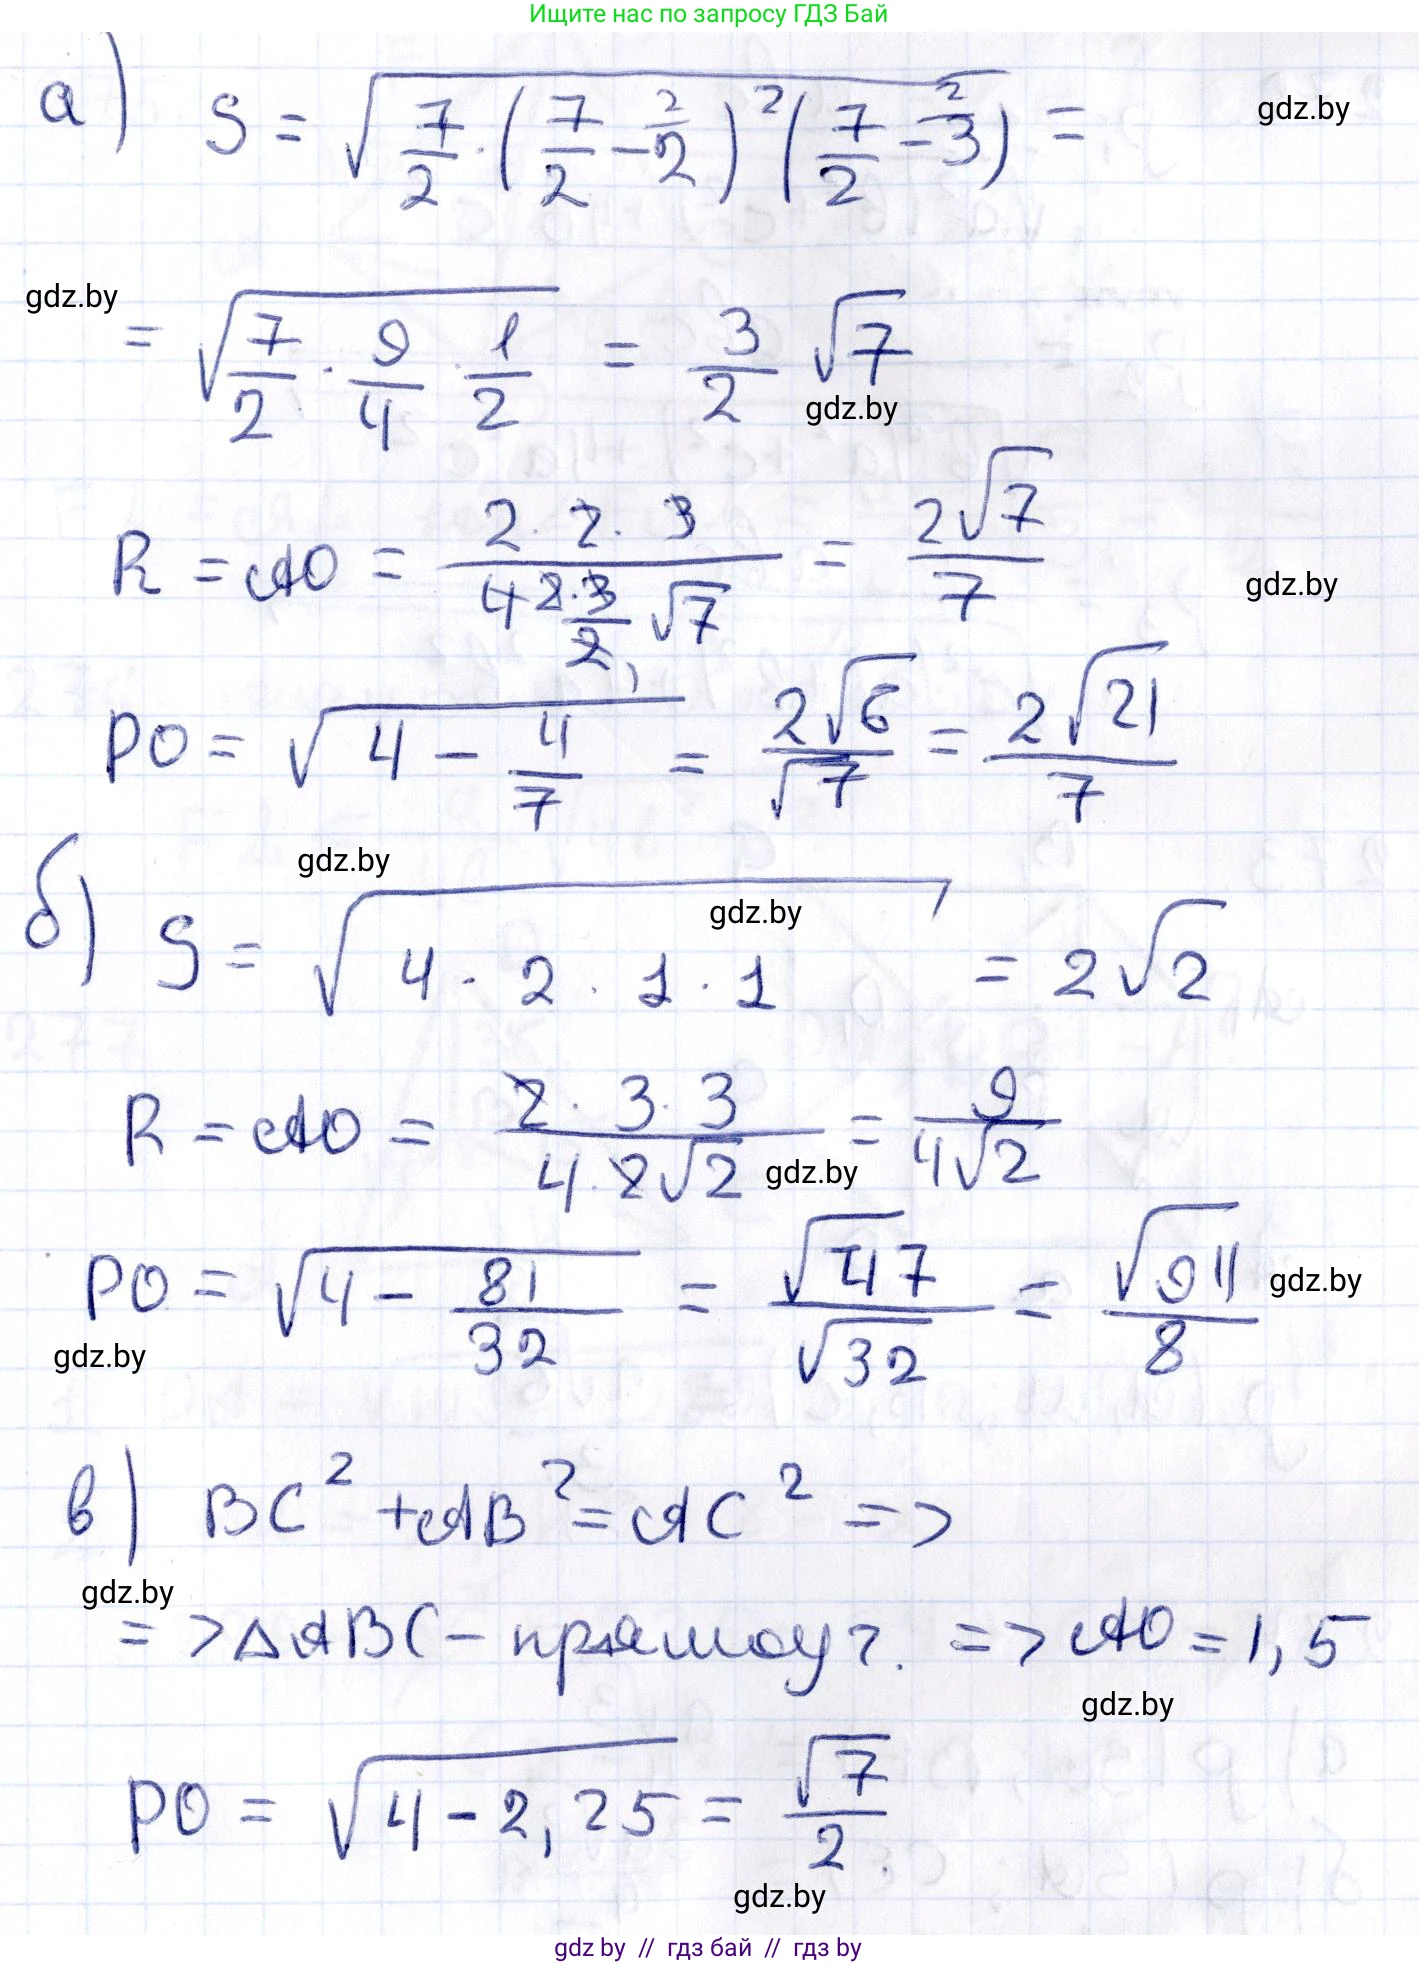 Ищите нас по запросу ГДЗ Бай
а) S = √(7/2 · (7/2 − 2/2)² (7/2 − 2/3)) =
gdz.by
gdz.by
= √(7/2 · 9/4 · 1/2) = 3/2 √7
gdz.by
R = AO = (2 · 2 · 3)/(4 2 · 3/2 √7) = 2√7/7
gdz.by
PO = √(4 − 4/7) = 2√6/√7 = 2√21/7
gdz.by
gdz.by
б) S = √(4 · 2 · 1 · 1) = 2√2
R = AO = (2 · 3 · 3)/(4 · 2√2) = 9/(4√2)
gdz.by
PO = √(4 − 81/32) = √47/√32 = √94/8
gdz.by
gdz.by
в) BC² + AB² = AC² =>
gdz.by
=> ΔABC – прямоуг. => AO = 1,5
gdz.by
PO = √(4 − 2,25) = √7/2.
gdz.by
gdz by // гдз бай // гдз by